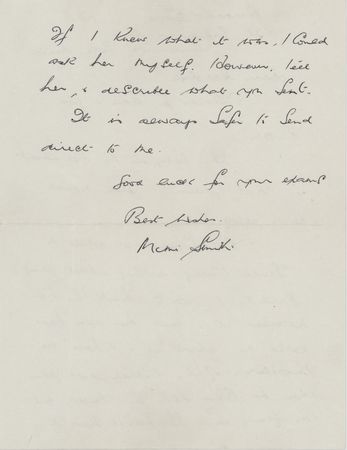 If I knew what it was, I could
ask her myself. However, I'll
her, & describe what you sent.
It is always safer to send
direct to me.
Good luck for your exams
Best wishes.
Mimi Smith.